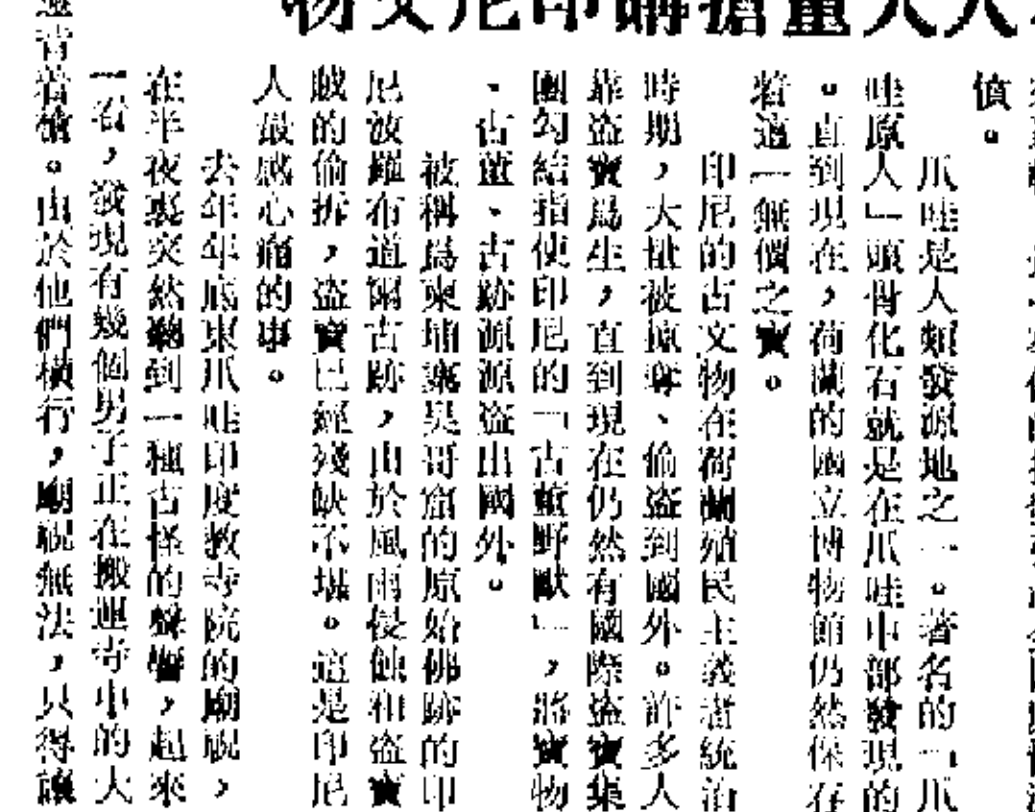 人大量搶購印尼文物
債。
爪哇是人類發源地之一。著名的「爪
哇原人」頭骨化石就是在爪哇中部發現的
。直到現在,荷蘭的國立博物館仍然保存
着這一無價之寶。
印尼的古文物在荷蘭殖民主義者統治
時期,大批被掠奪、偷盜到國外。許多人
靠盜寶爲生,直到現在仍然有國際盜寶集
團勾結指使印尼的「古董野獸」,將寶物
、古董、古跡源源盜出國外。
被稱爲柬埔寨吳哥窟的原始佛跡的印
尼波羅布道爾古跡,由於風雨侵蝕和盜寶
賊的偷拆,盜寶已經殘缺不堪。這是印尼
人最感心痛的事。
去年年底東爪哇印度教寺院的廟祝,
在半夜裏突然聽到一種古怪的聲響,起來
一看,發現有幾個男子正在搬運寺中的大
着槍。由於他們橫行,廟祝無法,只得讓